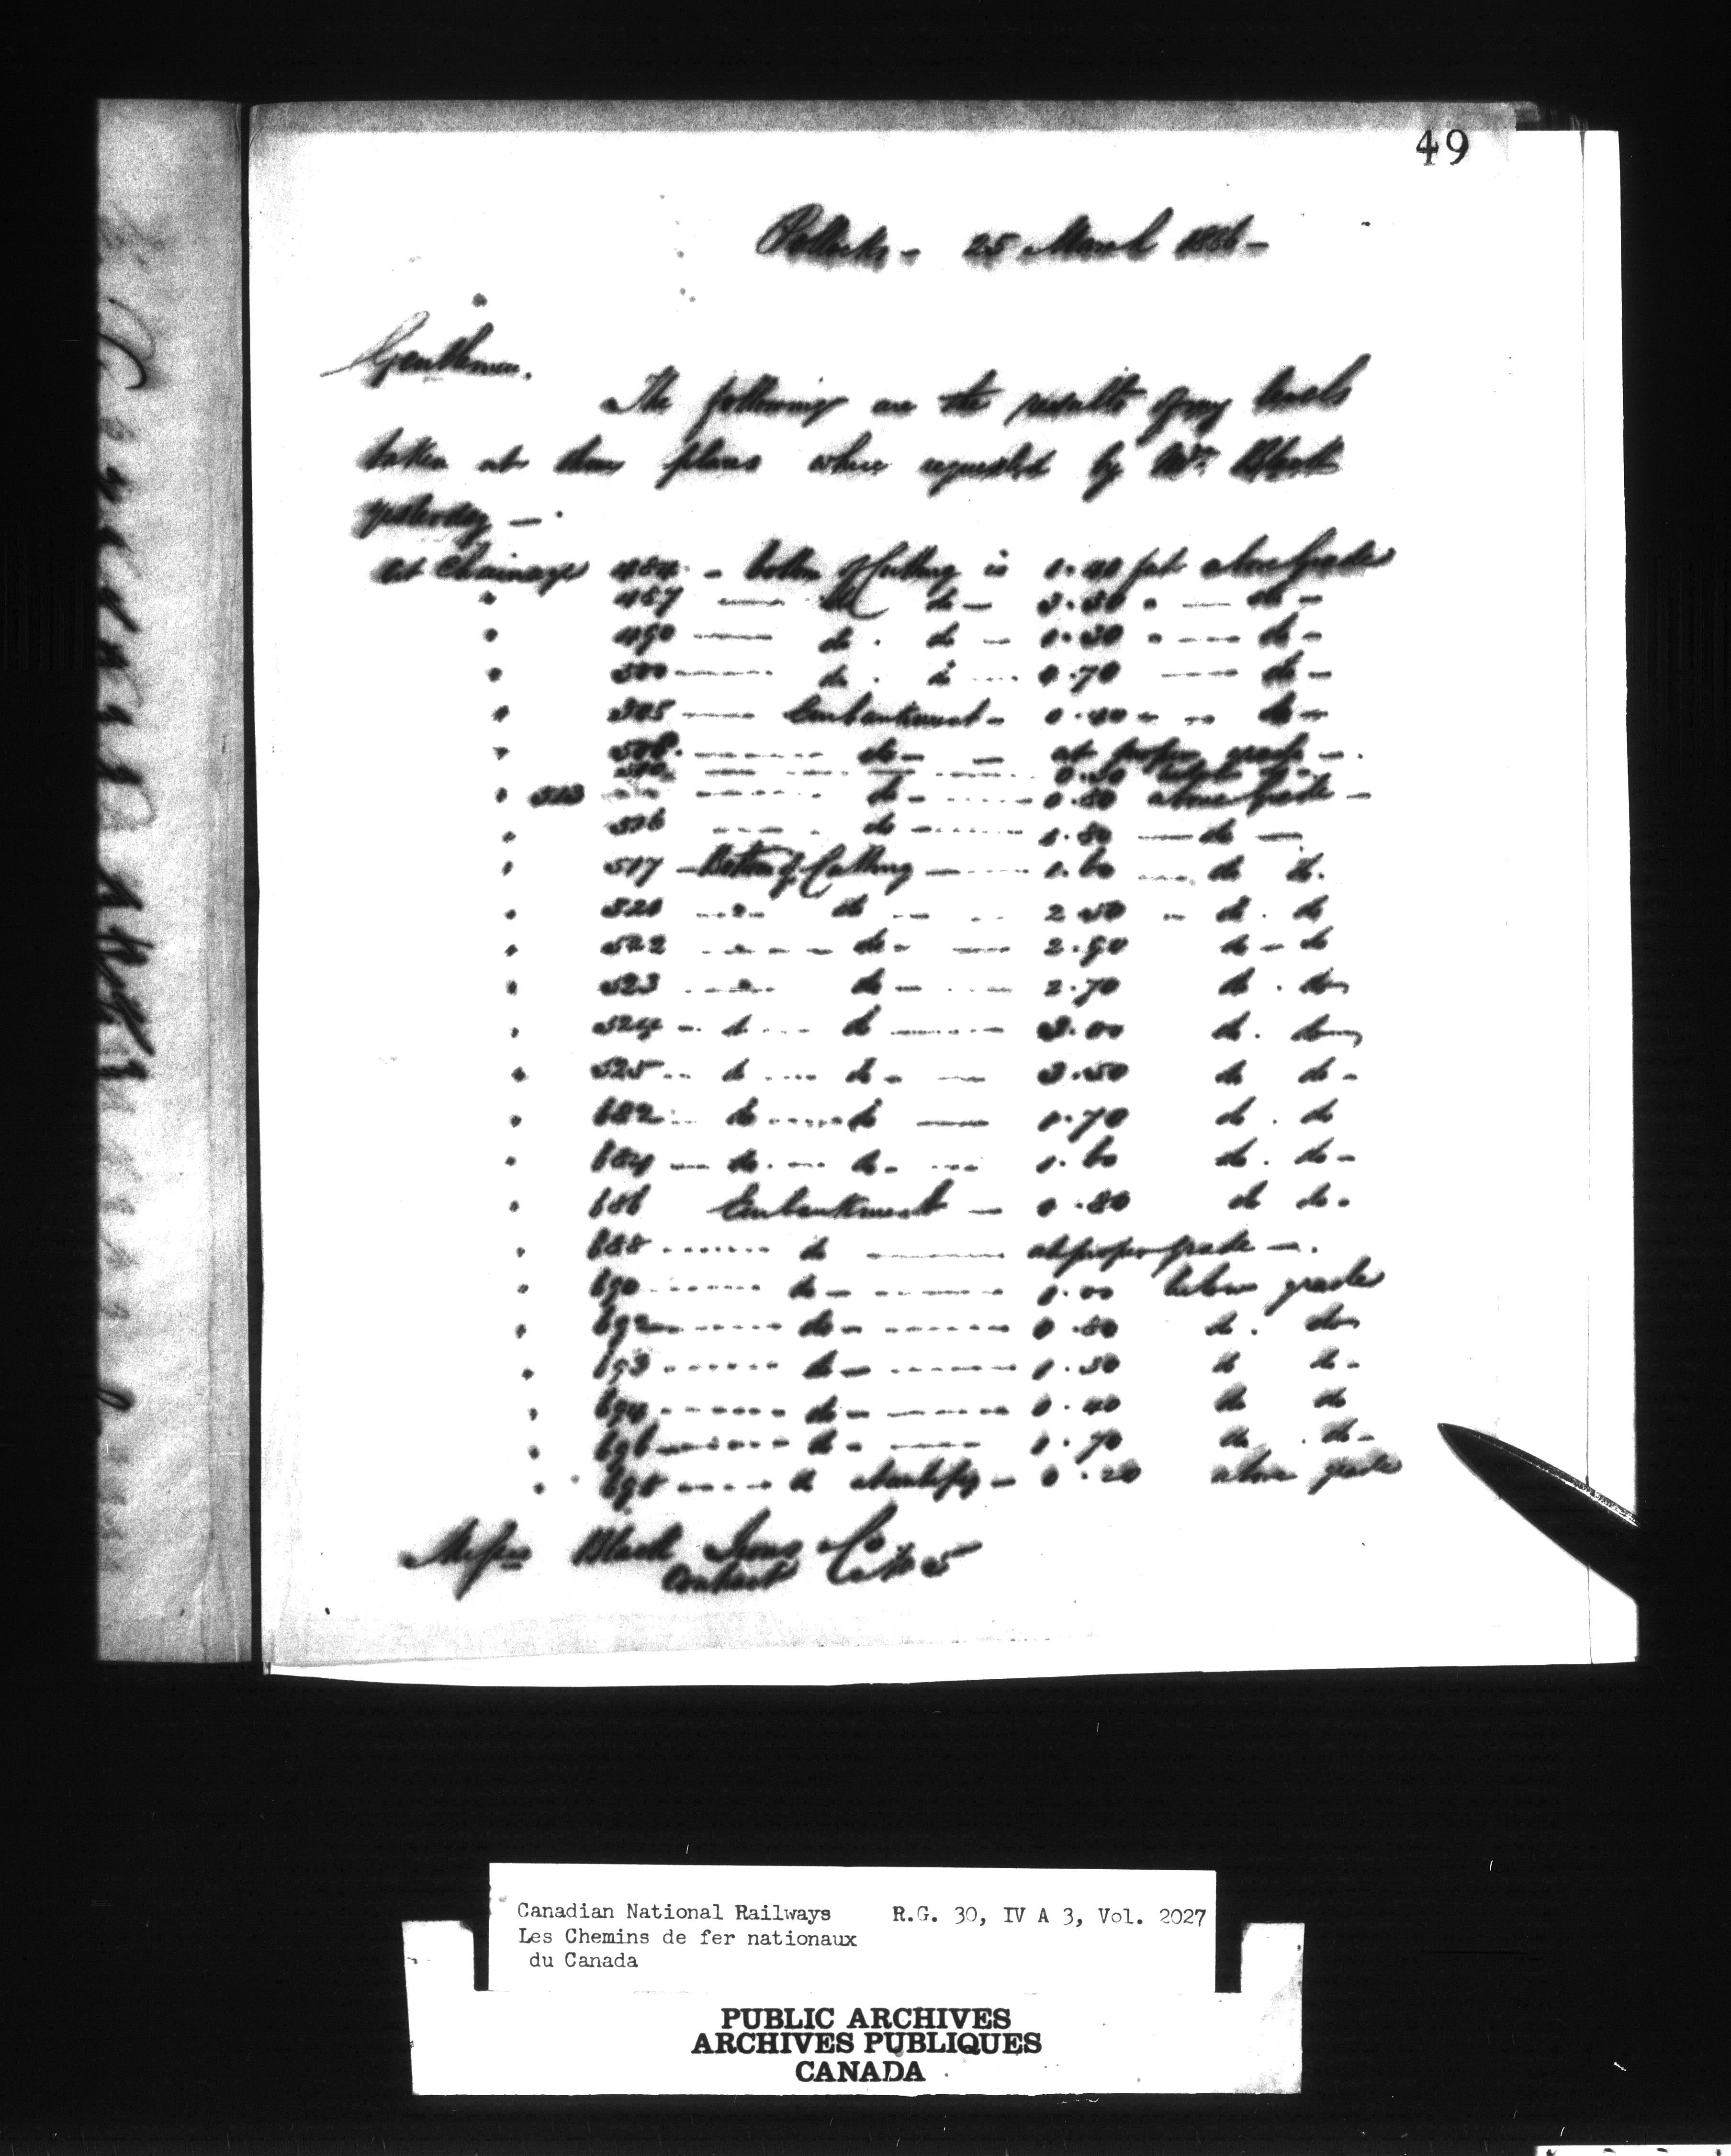 49
25 March 1886 -
Gentlemen.
The following are the results of my levels
taken at those places where requested by Mr. Black
yesterday -
At Chainage 484 - bottom of Cutting is 1.40 feet above grade
" 487 do do - 3.30 " do -
" 490 do . do - 1.30 " do -
" 500 do . do 0.70 do -
" 505 Embankment - 0.40 - do -
" 508 do - at proper grade -
0.30 below
" 513 do - 0.80 above grade -
" 516 do 1.80 do -
" 517 - Bottom of Cutting 1.60 do do.
" 520 " do 2.50 - do . do
" 522 " do - 2.90 do - do
" 523 " do - 2.70 do . do
" 524 - do do 3.00 do . do
" 525 do do - 3.50 do do -
" 682 do do 1.70 do . do
" 684 - do do - 1.60 do . do -
" 686 Embankment - 0.80 do do -
" 688 do at proper grade -
" 690 do - 1.00 below grade
" 692 do - 0.80 do . do
" 693 do - 1.30 do do -
" 694 do - 0.40 do do
" 696 do - 1.70 do . do -
" 698 do 0.20 above grade
Messrs Black Co
Contract 5
Canadian National Railways R.G. 30, IV A 3, Vol. 2027
Les Chemins de fer nationaux
du Canada
PUBLIC ARCHIVES
ARCHIVES PUBLIQUES
CANADA